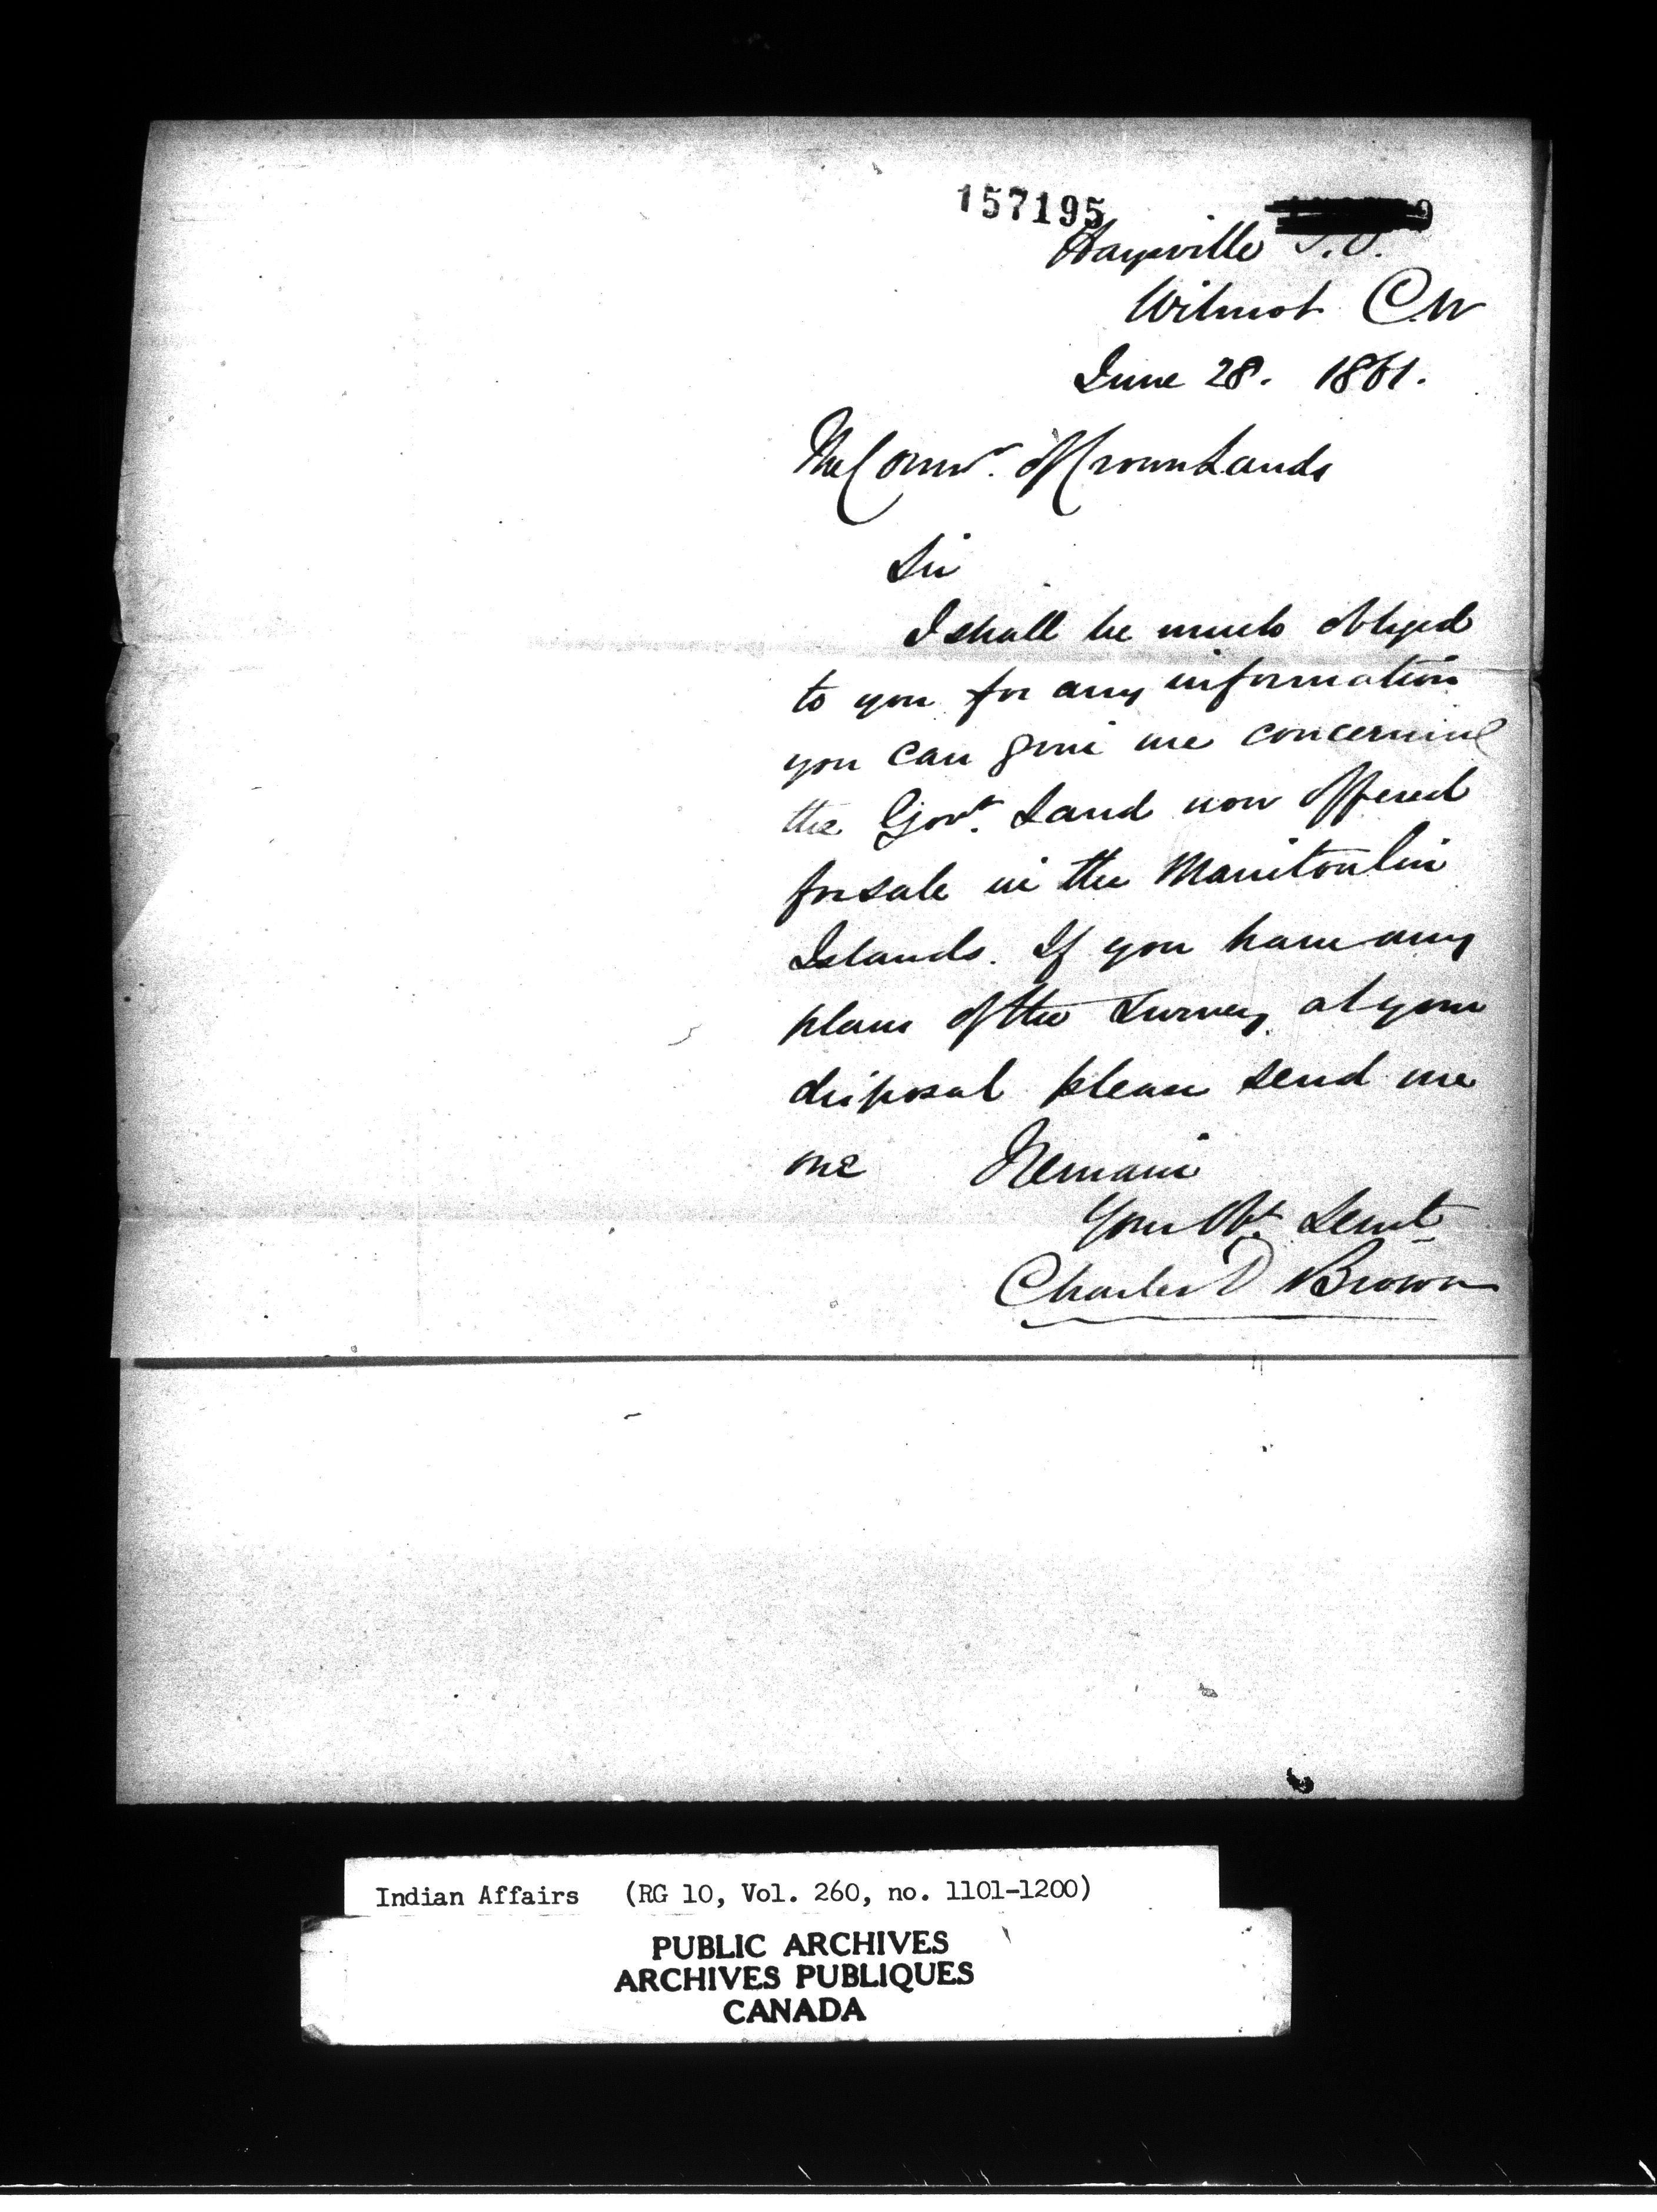 157195
Haysville P.O.
Wilmot C.W
June 28. 1861.
The Comr. of Crown Lands
Sir
I shall be much obliged
to you for any information
you can give me concerning
the Govt. Land now offered
for sale in the Manitoulin
Islands. If you have any
plans of the Survey at your
disposal please send me
one I Remain
Your Obt. Servt
Charles D Brown
Indian Affairs (RG 10, Vol. 260, no. 1101-1200)
PUBLIC ARCHIVES
ARCHIVES PUBLIQUES
CANADA